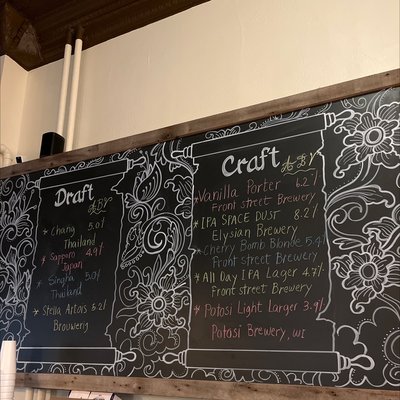 Draft
ABV
* Chang 5.0%
Thailand
* Sapporo 4.9%
Japan
* Singha 5.0%
Thailand
* Stella Artois 5.2%
Brouwery
Craft ABV
* Vanilla Porter 6.2%
Front street Brewery
* IPA SPACE DUST 8.2%
Elysian Brewery
* Cherry Bomb Blonde 5.4%
Front Street Brewery
* All Day IPA Lager 4.7%
Front street Brewery
* Potosi Light Larger 3.9%
Potosi Brewery, WI